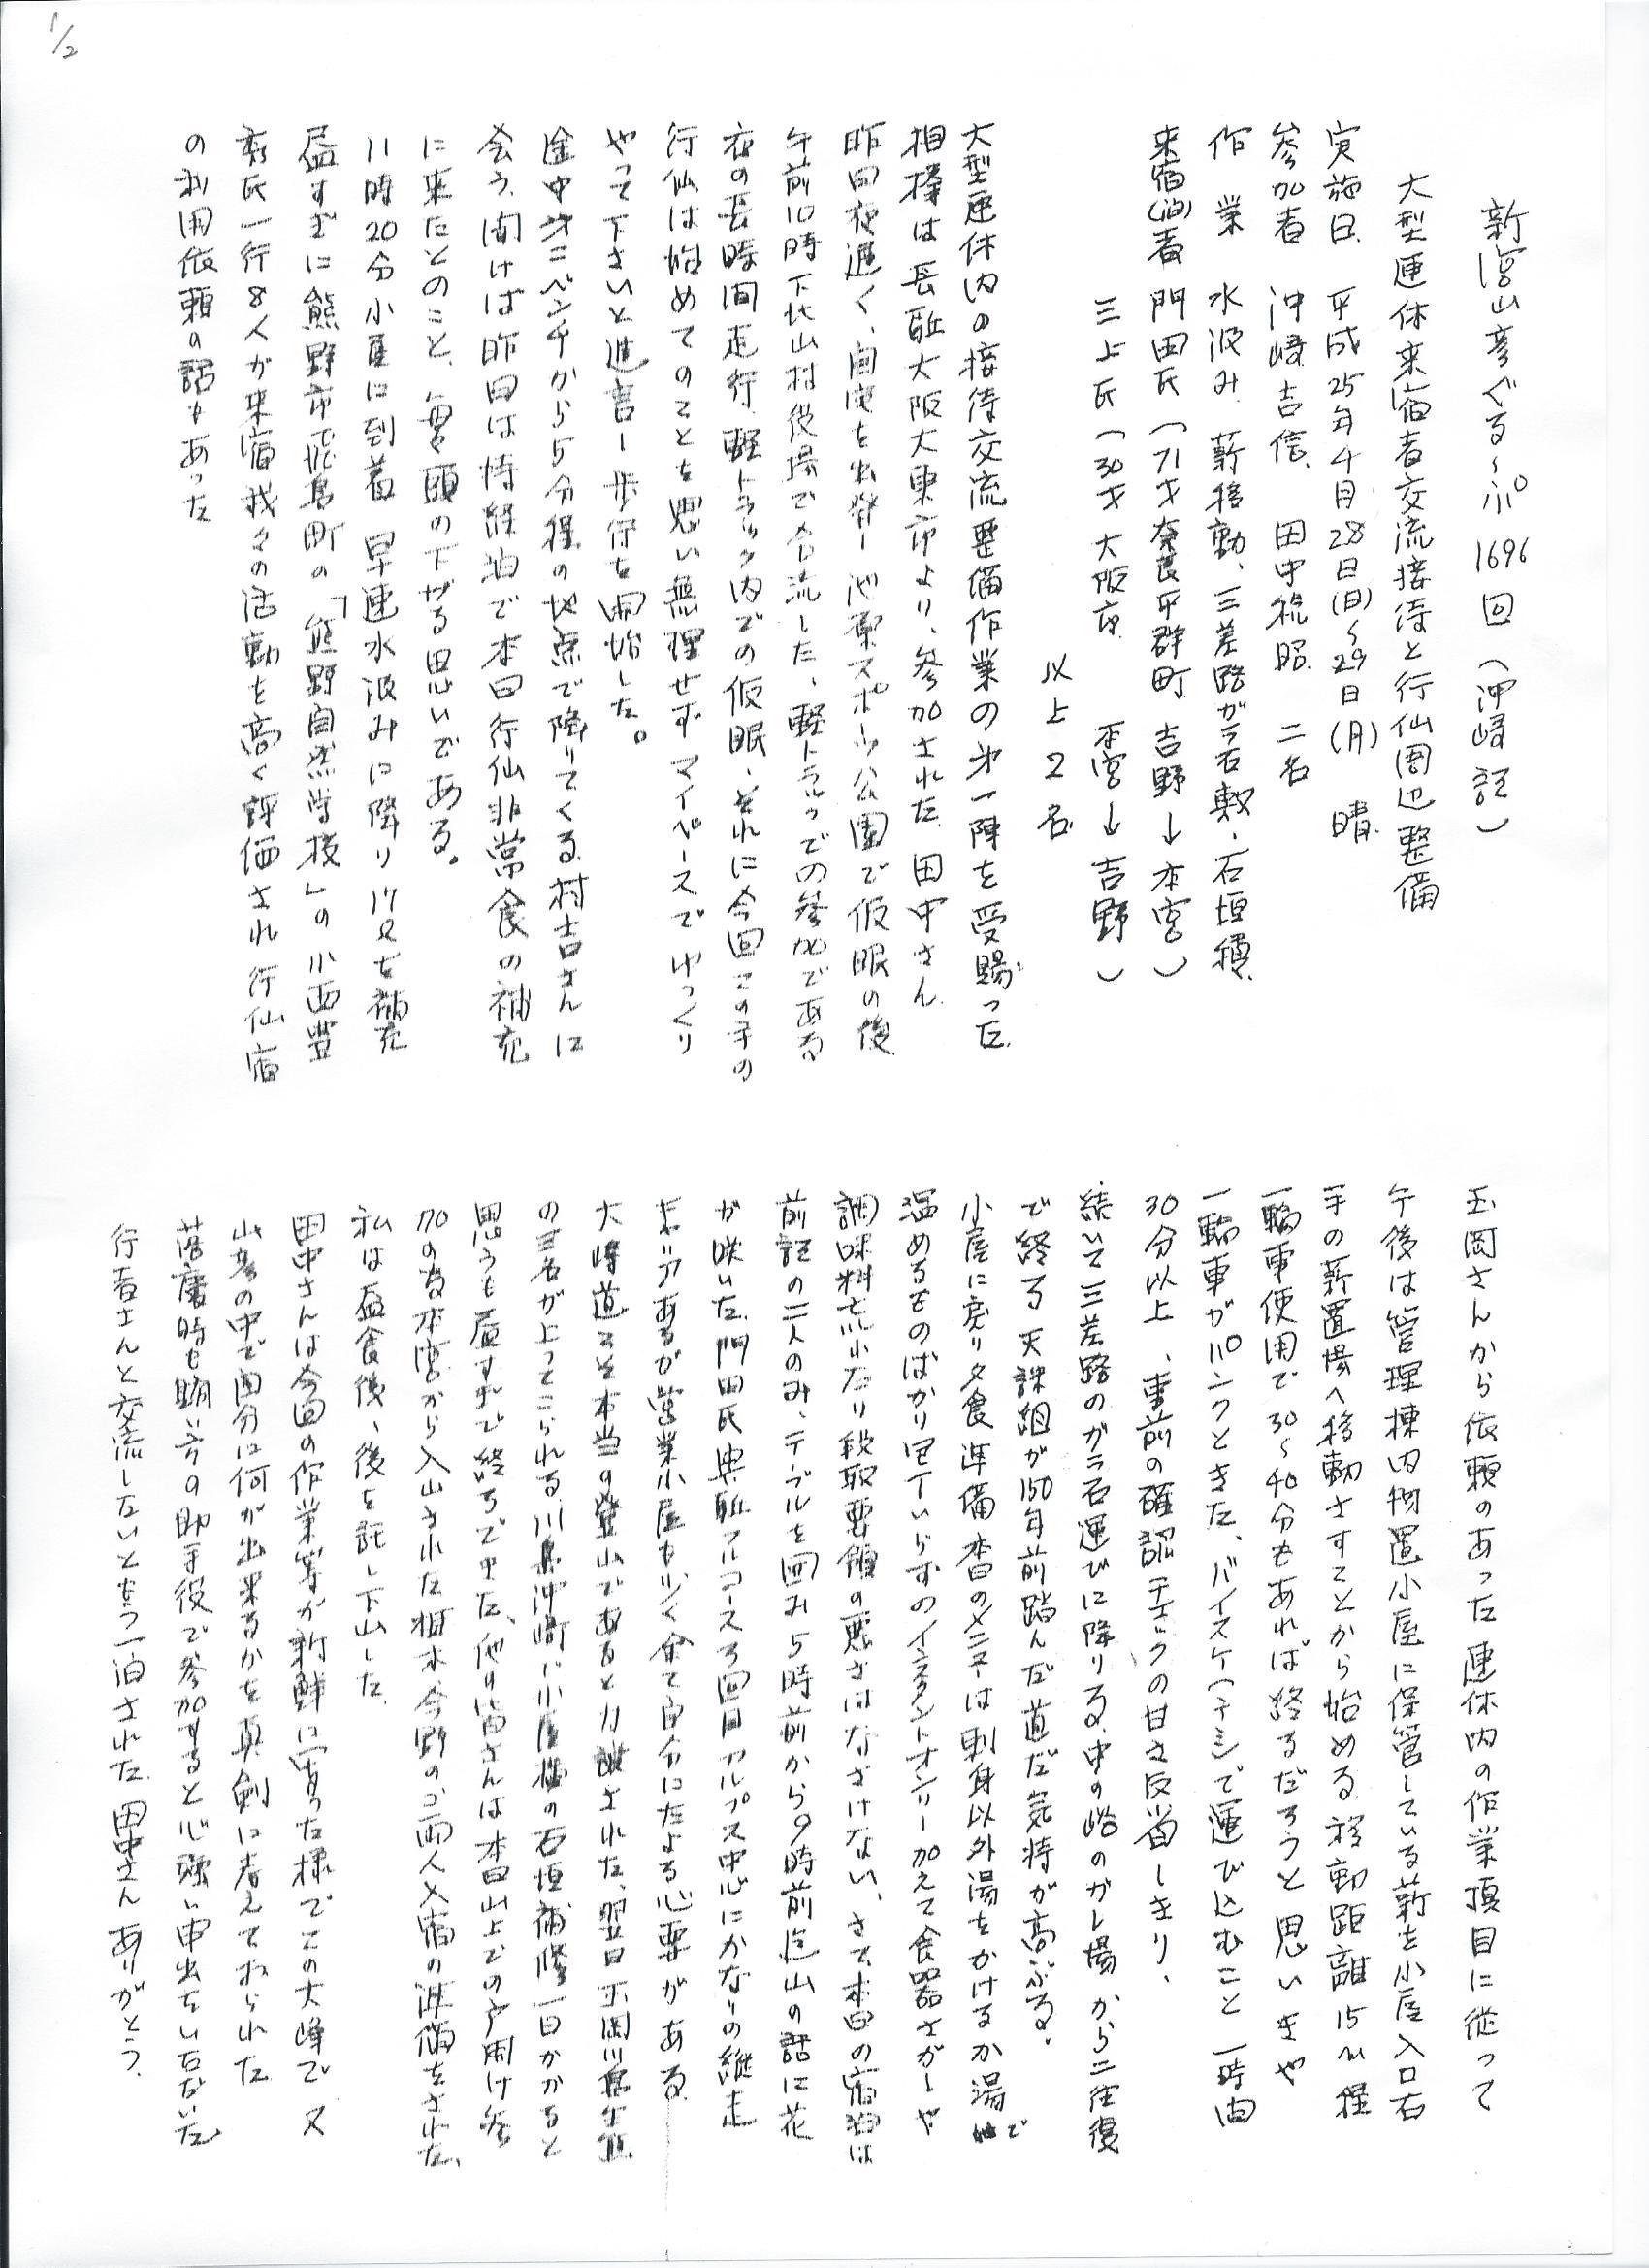 1/2
新宮山彦ぐるーぷ 1696回（沖崎記）
大型連休来宿者交流接待と行仙周辺整備
実施日 平成25年4月28日(日)～29日(月) 晴
参加者 沖崎吉信 田中 昭 二名
作業 水汲み、薪移動、三差路ガラ石敷、石垣積
来宿(泊)者 門田氏（71才奈良平群町 吉野→本宮）
三上氏（30才大阪市 本宮→吉野）
以上2名
大型連休内の接待交流整備作業の第一陣を受賜った
相棒は長駈大阪大東市より、参加された田中さん
昨日夜遅く、自宅を出発し池原スポーツ公園で仮眠の後
午前10時下北山村役場で合流した、軽トラックでの参加である
夜の長時間走行、軽トラック内での仮眠、それに今回この子の
行仙は始めてのことを思い無理せずマイペースでゆっくり
やって下さいと進言し歩行を開始した。
途中第二ベンチから5分程の地点で降りてくる村吉さんに
会う、聞けば昨日は持経泊で本日行仙非常食の補充
に来たとのこと、毎々頭の下がる思いである。
11時20分小屋に到着 早速水汲みに降り17ℓを補充
昼すぎに熊野市飛鳥町の「熊野自然学校」の小西豊
氏一行8人が来宿我々の活動を高く評価され行仙宿
の利用依頼の話もあった
玉岡さんから依頼のあった連休内の作業項目に従って
午後は管理棟内物置小屋に保管している薪を小屋入口右
手の薪置場へ移動さすことから始める 移動距離15m程
一輪車使用で30～40分もあれば終るだろうと思いきや
一輪車がパンクときた、バイスケ（テミ）で運び込むこと一時間
30分以上、事前の確認チェックの甘さ反省しきり、
続いて三差路のガラ石運びに降りる、中の峪のガレ場から二往復
で終る 天誅組が150年前踏んだ道だ気持が高ぶる。
小屋に戻り夕食準備 本日のメニューは刺身以外湯をかけるか湯で
温めるものばかり包丁いらずのインスタントオンリー加えて食器さがしや
調味料 たり段取要領の悪さはなさけない、さて本日の宿泊は
前記の二人のみ、テーブルを囲み5時前から9時前迄山の話に花
が咲いた、門田氏奥駈フルコース3回目アルプス中心にかなりの縦走
キャリアあるが営業小屋も少く全て自分にたよる必要がある
大峰道こそ本当の登山であると力説された、翌日玉岡川島生熊
の三名が上ってこられる、川島沖崎で小屋横の石垣補修一日かかると
思うも昼すぎで終了できた、他の皆さんは本日山上での戸開け参
加の為本宮から入山された 木、今野の、両人入宿の準備をされた、
私は昼食後、後を託し下山した
田中さんは今回の作業等が新鮮に写った様でこの大峰で又
山彦の中で自分に何が出来るかを真剣に考えておられた
時も賄い方の助手役で参加すると心強い申出をいただいた
行者さんと交流したいともう一泊された 田中さんありがとう。